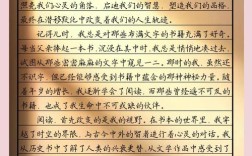 照亮我们心灵的角落、启迪我们的智慧、塑造我们的品格
最终在潜移默化中改变着我们的人生轨迹。
记得儿时，我总是对那些布满文字的书籍充满了好奇。
每当父亲捧起一本书，沉浸在其中时，我总是悄悄地凑过去，
试图从那些密密麻麻的文字中窥见一二，那时的我，虽然还
不识字，但已经能够感受到书籍中蕴含的那种神秘力量，随
着年岁的增长，我逐渐学会了阅读，而那些曾经遥不可及的书
籍，也成了我生命中不可或缺的伙伴。
阅读，首先改变的是我的视野，在书本的世界里，我穿
越了时空的界限，与古今中外的智者进行着心灵的对话，我
从历史书中了解了人类的兴衰更替，从文学作品中感受到了